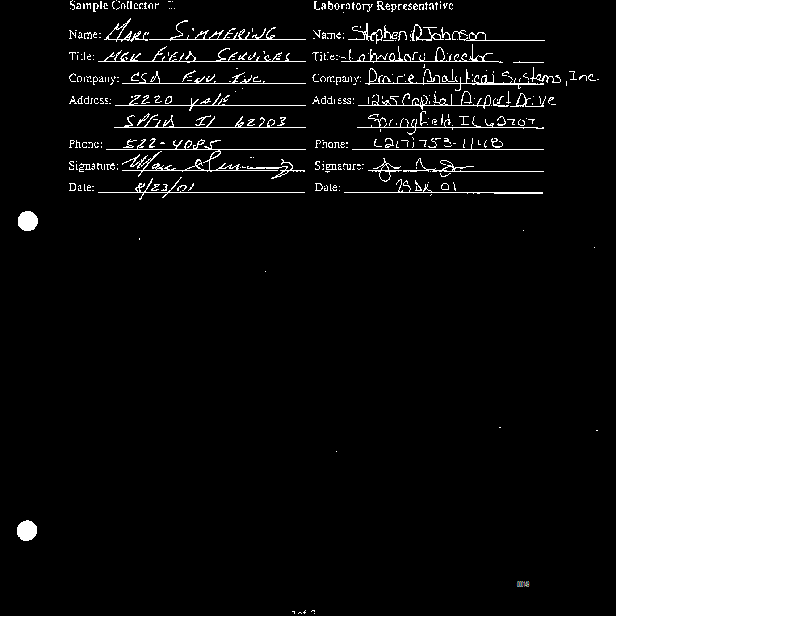 Sample Collector Laboratory Representative
Name: MARC SIMMERING Name: Stephen R Johnson
Title: MGR FIELD SERVICES Title: Laboratory Director
Company: CSD ENV. INC. Company: Prairie Analytical Systems, Inc.
Address: 2220 yale Address: 1265 Capital Airport Drive
SPFLD Il 62703 Springfield, IL 62707
Phone: 522-4085 Phone: (217) 753-1148
Signature: Marc Simmering Signature:
Date: 8/23/01 Date: 01
2 of 2